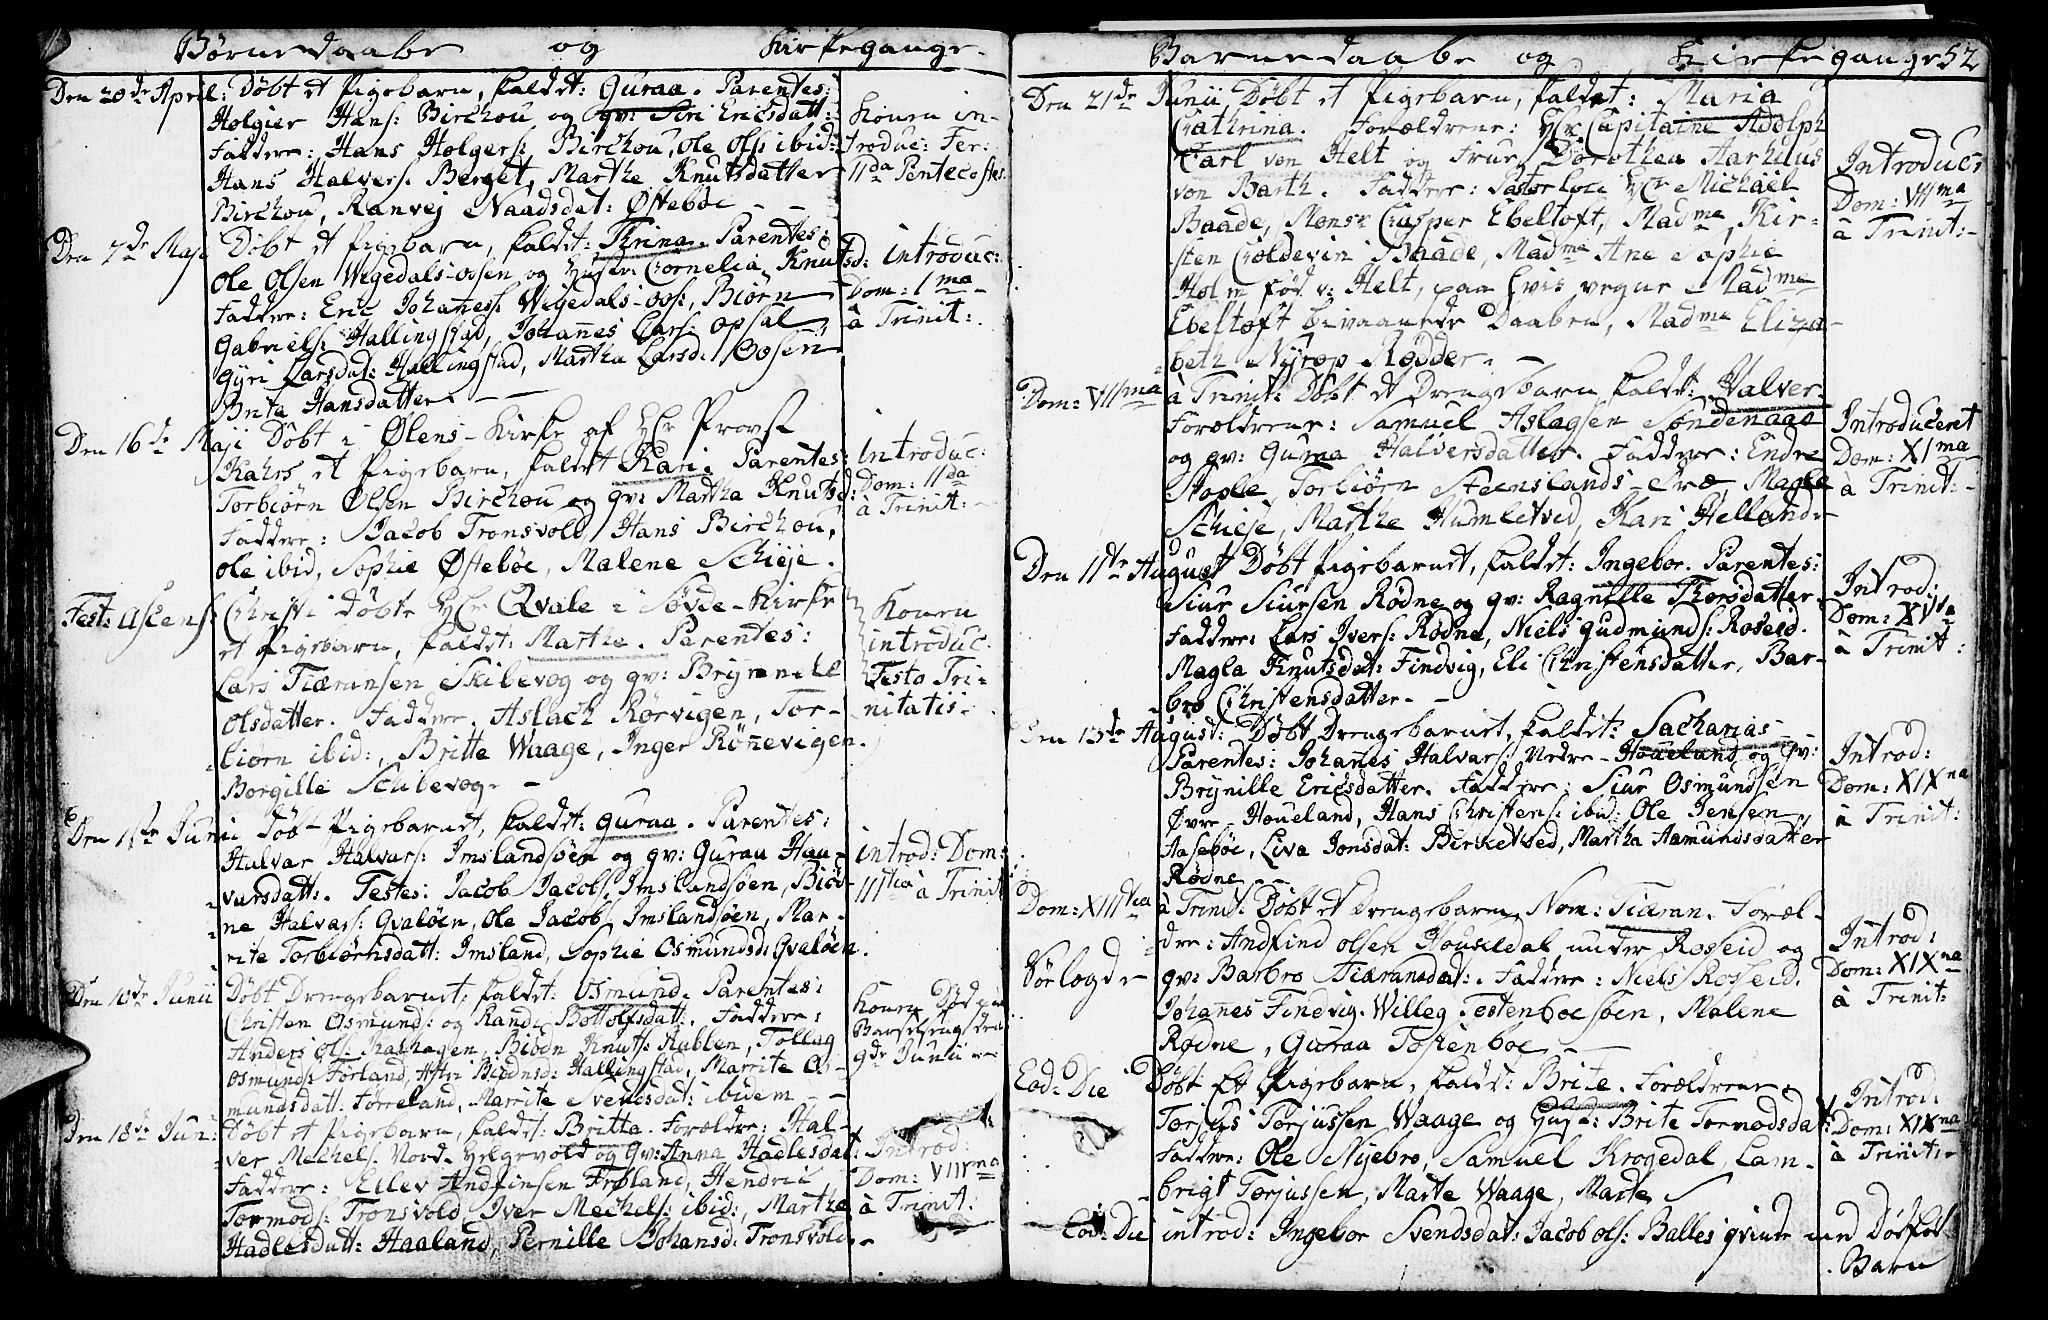 Børnedaabe og Kirkegange.
Den 20de April: Døbt et Pigebarn, kaldet: Guraa. Parentes:
Holgier Hans: Birchou og qv: Siri Ericsdatt:
Faddere: Hans Holgers: Birchou, Ole Ols: ibid:
Hans Halvers: Berget, Marthe Knutsdatter
Birchou, Ranvej Naadsdat: Østebøe
Konen in-
troduc: Fer:
IIda Pentecostes.
Den 7de Maji Døbt et Pigebarn, kaldet: Thrina. Parentes:
Ole Olsen Wegedals-oosen og Hustr: Cornelia Knutsd:
Faddere: Eric Johaness: Wegedals-oos:, Biørn
Gabriels: Hallingstad, Johannes Lars: Opsal
Gyri Larsdat: Hallingstad, Martha Larsd: Oosen
Brita Hansdatter.
introduc:
Dom: 1ma
à Trinit:
Den 16de Maji Døbt i Ølens-Kirke af Hr Provst
Kahrs et Pigebarn, kaldet Kari. Parentes:
Torbiørn Olsen Birchou og qv: Martha Knutsd:
Faddere: Jacob Tronsvold, Hans Birchou,
Ole ibid, Sophie Østebøe, Malene Schieje.
Introduc:
Dom: IIda
à Trinit:
Fest: Ascens: Christi Døbte Hr Qvale i Søvde-Kirke
et Pigebarn, kaldet: Marthe. Parentes:
Lars Tiæransen Skibevog og qv: Brynnell
Olsdatter. Faddere. Aslach Rørvigen, Tor-
biørn ibid:, Britte Waage, Inger Rønevigen.
Borgille Schibevog.
Konen
introduc:
Festo Tri-
nitatis.
Den 1ste Junii Døbt Pigebarnet, kaldet: Guraa. Parentes:
Halvar Halvars: Imslandsøen og qv: Guraa Haa-
varsdatt:. Testes: Jacob Jacobs: Imslandsøen, Biød-
ne Halvars: Gvaløen, Ole Jacobs: Imslandsøen, Mar-
rite Torbiørnsdatt: Imsland, Sophie Osmundsd: Qvaløen.
introd: Dom:
IIItia à Trinit
Den 10de Junii Døbt Drengebarnet, kaldet: Osmund. Parentes:
Christen Osmunds: og Randi Bottolfsdatt:. Faddere:
Anders Ols: Kalhagen, Biødn Knuts: Aublen, Tollag
Osmunds: Førland, Astri Biødnsd: Hallingstad, Marrite Os-
mundsdatt: Førreland, Marrite Svendsdat: ibidem
Konen Død paa
Barselseng den
9de Junii
Den 18de Jun: Døbt et Pigebarn, kaldet: Britta. Forældre: Hal-
ver Mechels: Nord-Helgevold og Qv: Anna Hadlesdat:
Faddere: Ellev Andfinsen Frøland, Hendric
Tormods: Tronsvold Iver Mechels: ibid:, Martha
Hadlesdatt: Haaland, Pernille Johansd: Tronsvold.
Introd:
Dom: VIIma
à Trinit:
Barnedaabe og Kirkegange 52
Den 21de Junii Døbt et Pigebarn, kaldet: Maria
Cathrina. Forældrene: Hr Capitaine Adolph
Carl von Helt og Frue Dorothea Aarhuus
von Barth. Faddere: Pastor Loci Hr Michael
Baade, Monsr Casper Ebeltoft, Madme Kir-
sten Coldevin Baade, Madme Ane Sophie
Holm fød v: Helt, paa hvis vegne Madme
Ebeltoft bivaanede Daaben, Madme Eliza-
beth Nyrop Rødder.
Introducs
Dom: VIIma
à Trinit:
Dom: VIIma à Trinit: Døbt et Drengebarn kaldet: Halver.
Forældrene: Samuel Aslagsen Søndenaae
og qv: Guraa Halversdatter. Faddere: Endre
Stople, Torbiørn Steenslands-, Magla
Schieje, Marthe Humletved, Kari Helland.
Introduceret
Dom: XIma
à Trinit:
Den 11te August Døbt Pigebarnet, kaldet: Ingebor. Parentes:
Siur Siursen Rødne og qv: Ragnille Thorsdatter.
Faddere: Lars Ivers: Rødne, Niels Gudmunds: Roseid.
Magla Knutsdat: Findvig, Eli Christensdatter, Bar-
bro Christensdatter.
Introd:
Dom: XVta
à Trinit:
Den 13de August: Døbt Drengebarnet, kaldet: Sacharias
Parentes: Johannes Halvars: Nedre-Houeland og Qv:
Brynille Ericsdatter. Faddere: Siur Osmundsen
Øvre-Houeland, Hans Christens: ibid: Ole Jensen
Aasebøe, Liva Jonsdat: Birketved, Martha Aamundsdatter
Rødne.
Introd:
Dom: XIXna
à Trinit:
Dom: XIIItia à Trinit: Døbt et Drengebarn Nom: Tiæran. Foræl-
dre: Andfind Olsen Houseldal under Roseid og
qv: Barbro Tiæransdat:. Faddere: Niels Roseid.
Johannes Findvig. Willeg Testenboesøen, Malene
Rødne, Guraa Tostenboe
Introd:
Dom: XIXna
à Trinit:
Eod: Die Døbt Et Pigebarn, kaldet: Brite. Forældrene
Torjus Torjussen Waage og Hust: Brite Tormodsdat:
Faddere: Ole Nyebro, Samuel Krogedal, Lam-
brigt Torjussen, Marte Waage, Marte
Introd:
Dom: XIXna
à Trinit:
Eod: Die introd: Ingebor Svendsdat: Jacob Ols: Balles qvinde med Døfød
Barn